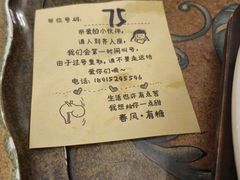 等位号码: 75
亲爱的小伙伴,
请入到齐入座,
我们会第一时间叫号,
由于过号重取, 请不要走远哟
爱你们哦~
电话: 18915245546
生活也许有点苦
我想给你一点甜
春风·有糖